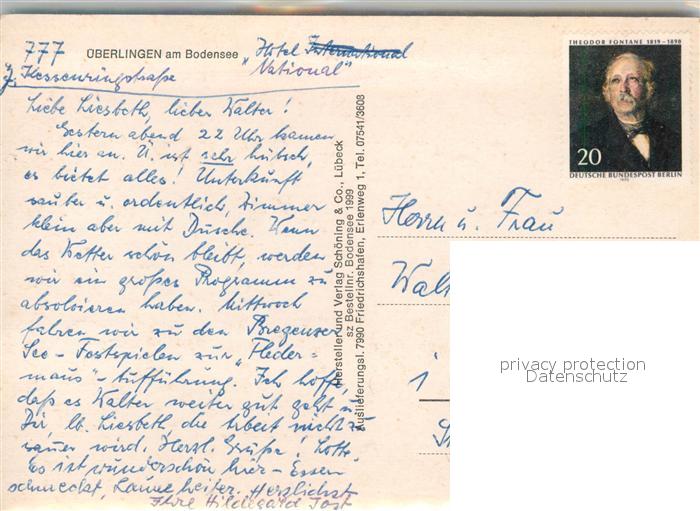 777 ÜBERLINGEN am Bodensee „Hotel International
National"
Kessenringstraße
Liebe Liesbeth, lieber Walter!
Gestern abend 22 Uhr kamen
wir hier an. Ü. ist sehr hübsch,
es bietet alles! Unterkunft
sauber u. ordentlich, Zimmer
klein aber mit Dusche. Wenn
das Wetter schön bleibt, werden
wir ein großes Programm zu
absolvieren haben. Mittwoch
fahren wir zu den Bregenzer
See-Festspielen zur „Fleder-
maus"-Aufführung. Ich hoffe,
daß es Walter weiter gut geht u.
Dir, lb. Liesbeth, die Arbeit nicht zu
sauer wird. Herzl. Grüße! Lotte.
Es ist wunderschön hier - Essen
schmeckt, Laune heiter. Herzlichst
Ihre Hildegard Jost
Hersteller und Verlag Schöning & Co., Lübeck
sz Bestellnr. Bodensee 1999
Auslieferungsl. 7990 Friedrichshafen, Erlenweg 1, Tel. 07541/3608
THEODOR FONTANE 1819-1898
20
DEUTSCHE BUNDESPOST BERLIN
1970
Herrn u. Frau
Walt
privacy protection
Datenschutz